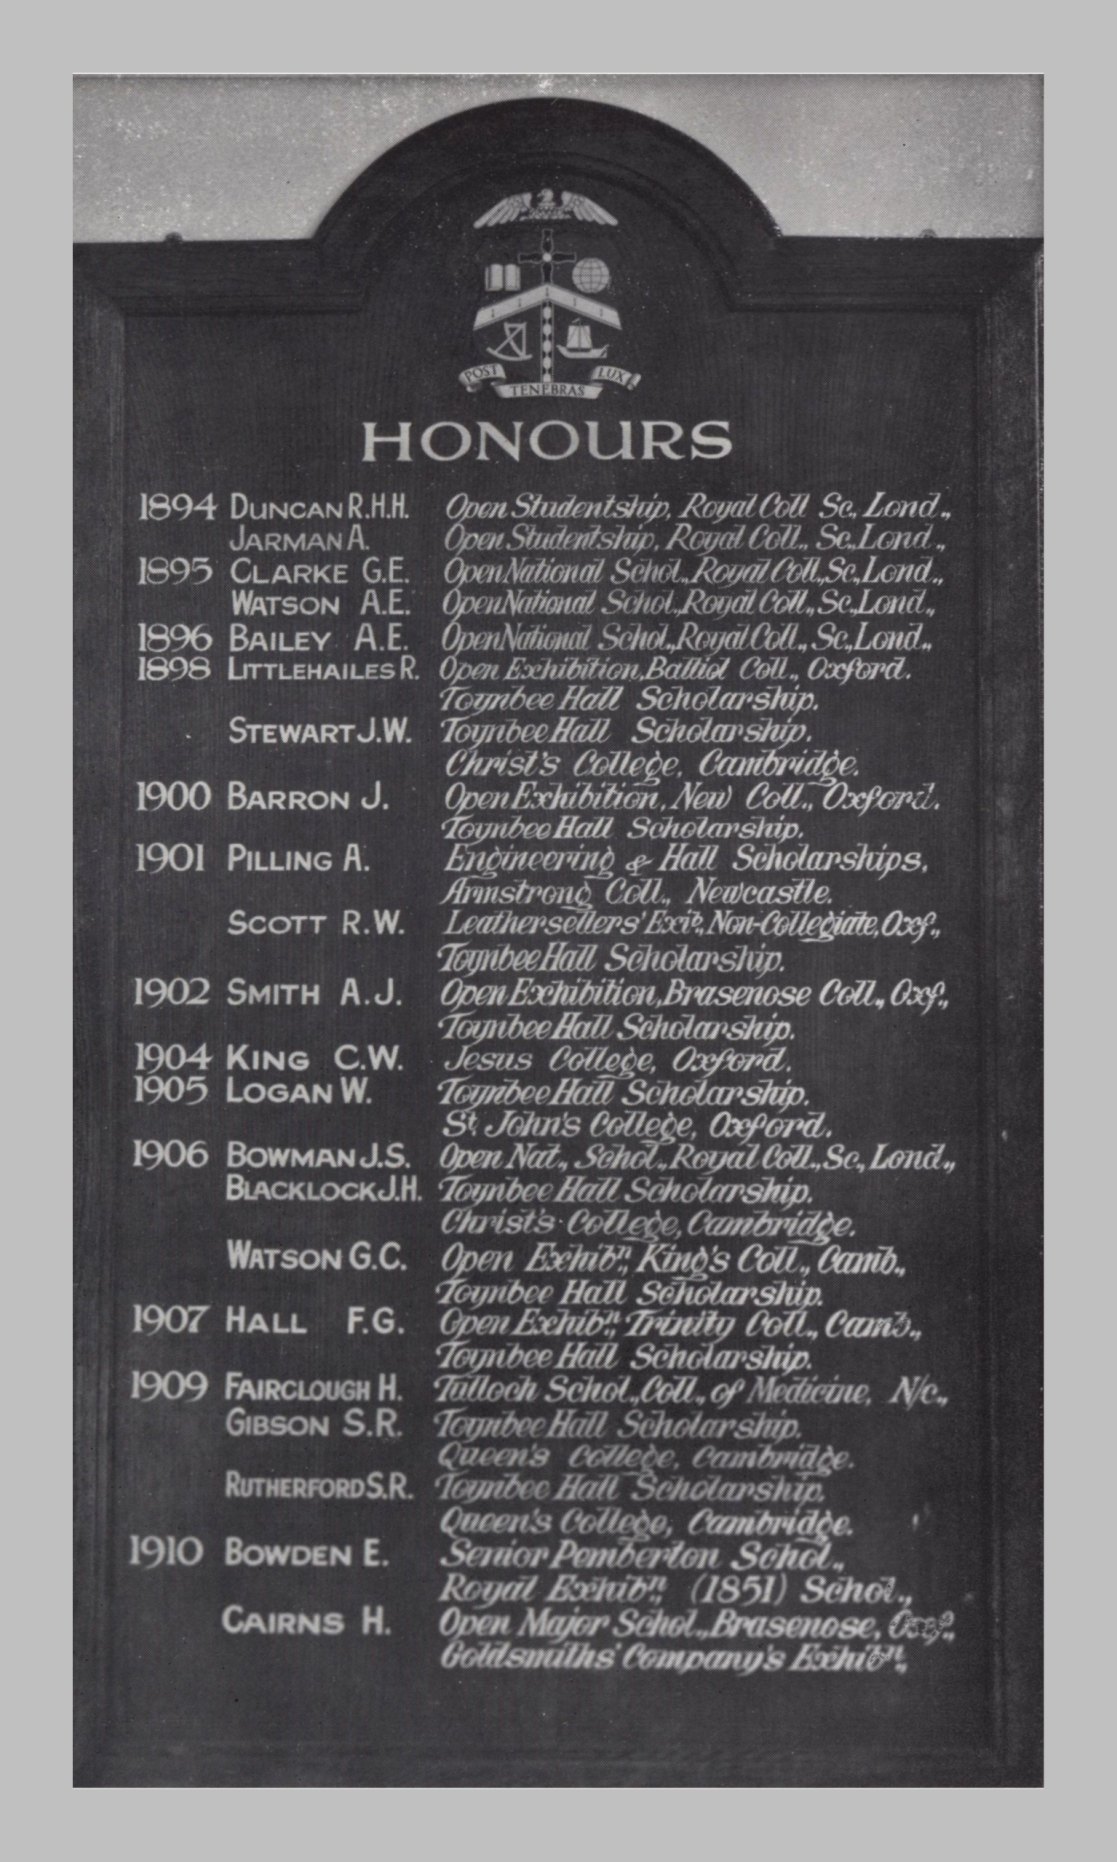 POST TENEBRAS LUX
HONOURS
1894 DUNCAN R.H.H. Open Studentship, Royal Coll Sc., Lond.,
JARMAN A. Open Studentship, Royal Coll., Sc., Lond.,
1895 CLARKE G.E. Open National Schol., Royal Coll., Sc., Lond.,
WATSON A.E. Open National Schol., Royal Coll., Sc., Lond.,
1896 BAILEY A.E. Open National Schol., Royal Coll., Sc., Lond.,
1898 LITTLEHAILES R. Open Exhibition, Balliol Coll., Oxford.
Toynbee Hall Scholarship.
STEWART J.W. Toynbee Hall Scholarship.
Christ's College, Cambridge.
1900 BARRON J. Open Exhibition, New Coll., Oxford.
Toynbee Hall Scholarship.
1901 PILLING A. Engineering & Hall Scholarships,
Armstrong Coll., Newcastle.
SCOTT R.W. Leathersellers' Exib., Non-Collegiate, Oxf.,
Toynbee Hall Scholarship.
1902 SMITH A.J. Open Exhibition, Brasenose Coll., Oxf.,
Toynbee Hall Scholarship.
1904 KING C.W. Jesus College, Oxford.
1905 LOGAN W. Toynbee Hall Scholarship.
St. John's College, Oxford.
1906 BOWMAN J.S. Open Nat., Schol., Royal Coll., Sc., Lond.,
BLACKLOCK J.H. Toynbee Hall Scholarship.
Christ's College, Cambridge.
WATSON G.C. Open Exhibn., King's Coll., Camb.,
Toynbee Hall Scholarship.
1907 HALL F.G. Open Exhibn., Trinity Coll., Camb.,
Toynbee Hall Scholarship.
1909 FAIRCLOUGH H. Tulloch Schol., Coll., of Medicine, N/c.,
GIBSON S.R. Toynbee Hall Scholarship.
Queen's College, Cambridge.
RUTHERFORD S.R. Toynbee Hall Scholarship.
Queen's College, Cambridge.
1910 BOWDEN E. Senior Pemberton Schol.,
Royal Exhibn., (1851) Schol.,
CAIRNS H. Open Major Schol., Brasenose, Oxf.,
Goldsmiths' Company's Exhibn.,